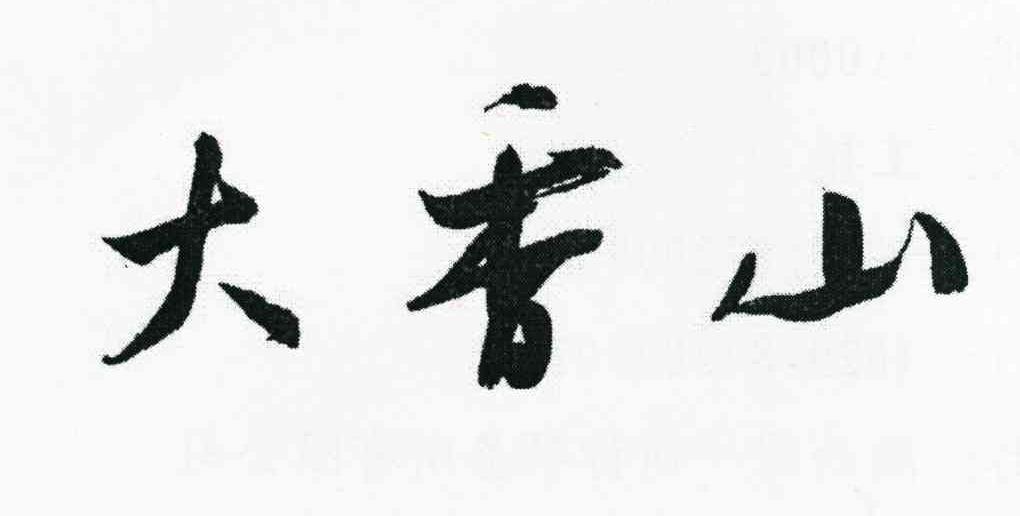 大香山